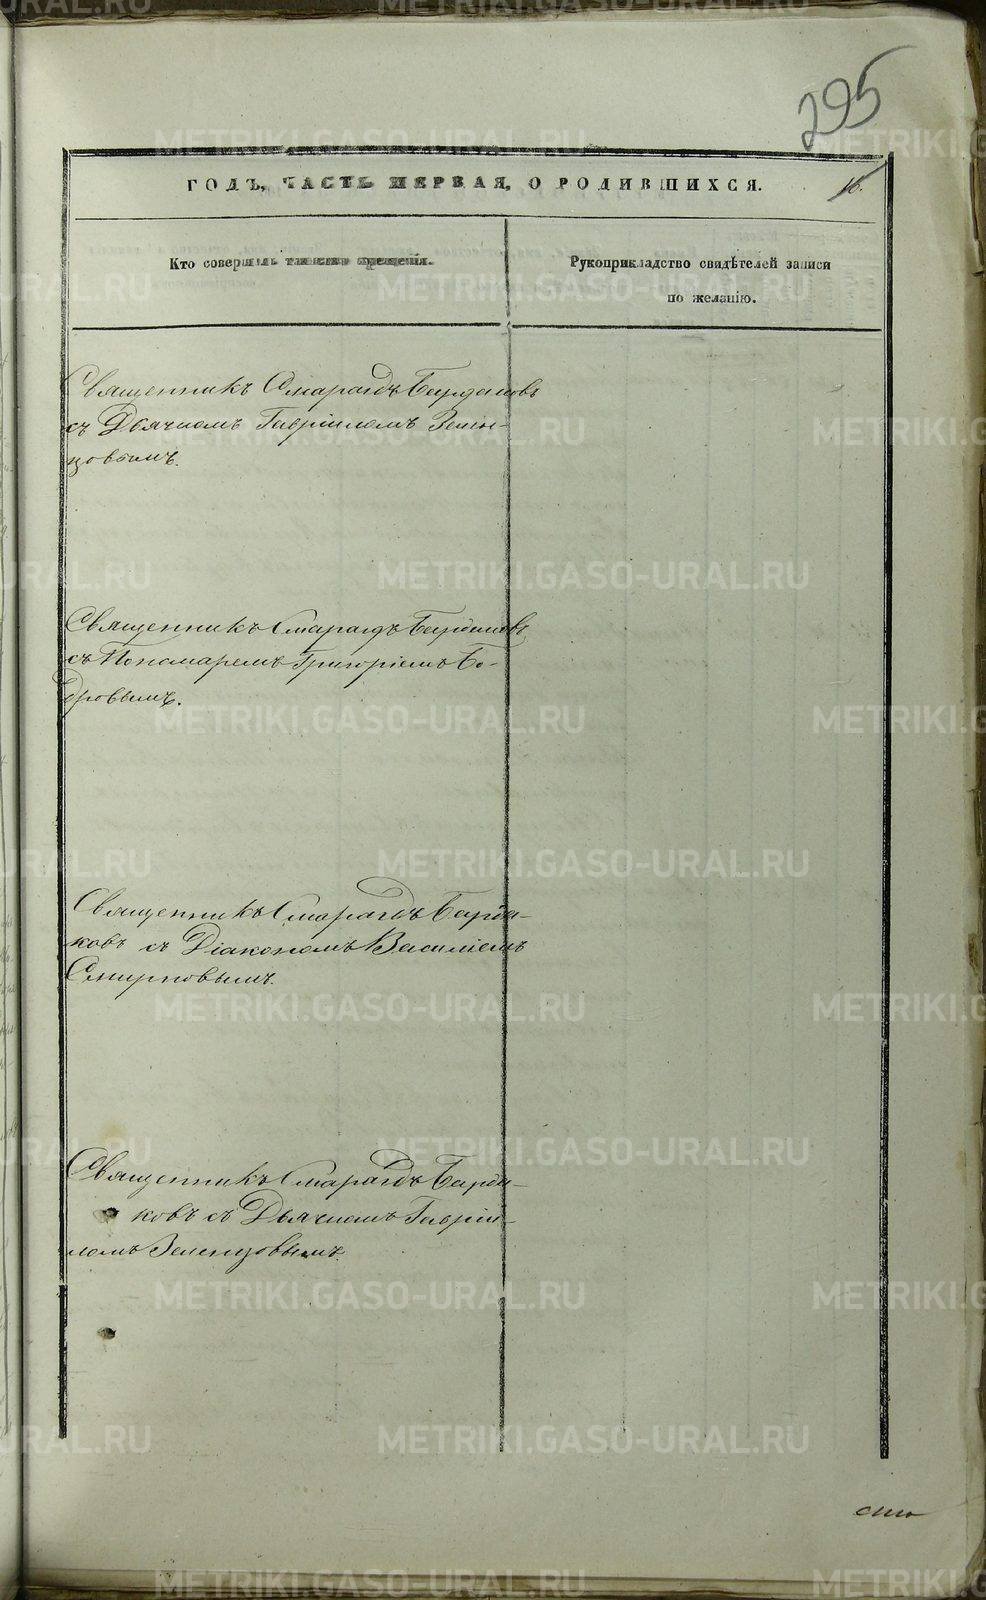 295
ГОДЪ, ЧАСТЬ ПЕРВАЯ, О РОДИВШИХСЯ.
16.
Кто совершалъ таинство крещенія.
Рукоприкладство свидѣтелей записи
по желанію.
Священникъ Смарагдъ Бурдаковъ
съ Дьячкомъ Гавріиломъ Зелен-
цовымъ.
Священникъ Смарагдъ Бурдаковъ
съ Пономаремъ Григоріемъ Бо-
бровымъ.
Священникъ Смарагдъ Бурда-
ковъ съ Діакономъ Василіемъ
Смирновымъ.
Священникъ Смарагдъ Бурда-
ковъ съ Дьячкомъ Гавріи-
ломъ Зеленцовымъ.
METRIKI.GASO-URAL.RU